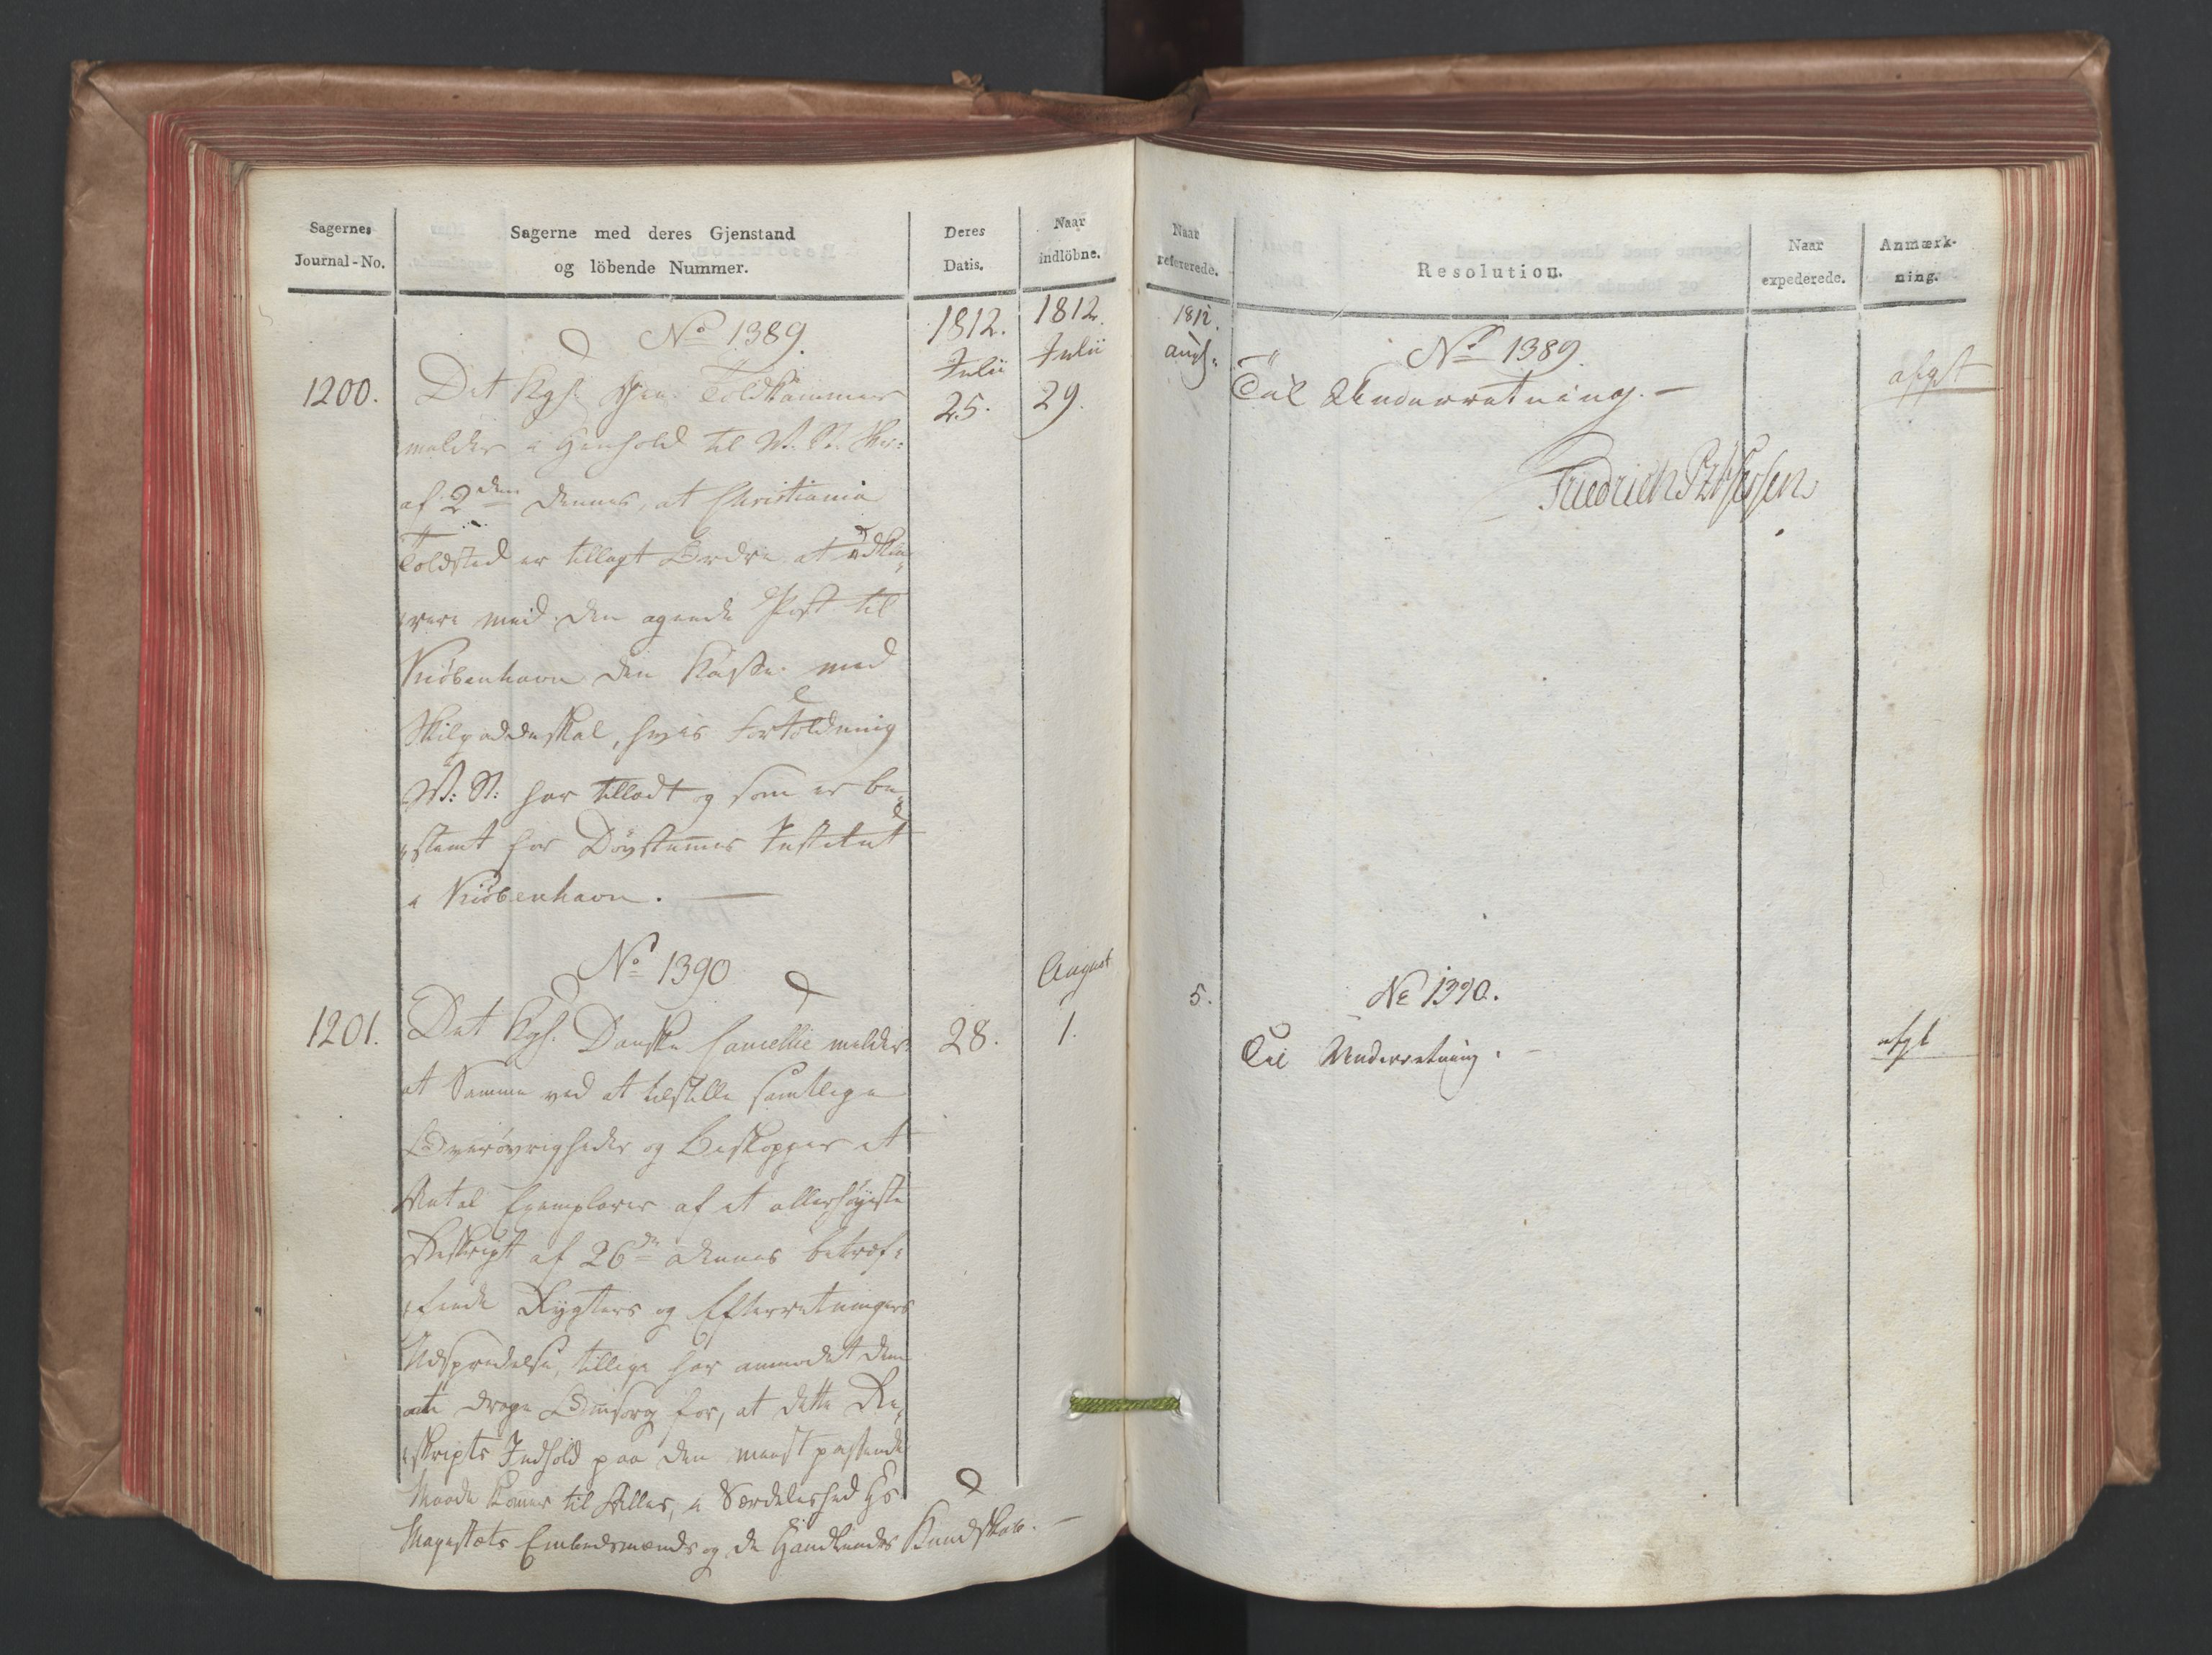 Sagernes
Journal-No.
Sagerne med deres Gjenstand
og löbende Nummer.
Deres
Datis.
Naar
indlöbne.
No 1389.
1812.
Julii
25.
1812.
Julii
29.
1200.
Det Kgl. Gen: Toldkammer
melder i Henhold til V. St. Skr:
af 2den dennes, at Christiania
Toldsted er tillagt Ordre at udkla„
„rere med den agende Post til
Kiöbenhavn den Kasse med
Skilpaddeskal, hvis Fortoldning
V: St: har tilladt og som er be„
„stemt for Døvstumme Institut
i Kiöbenhavn. —
No 1390
August
1201.
Det Kgl. Danske Cancellie melder
28.
1.
at Samme ved at tilstille samtlige
Overøvrigheder og Biskopper et
Antal Exemplarer af et allerhøjeste
Reskript af 26de dennes betref„
„fende Rygters og Efterretningers
Udspredelse, tillige har anmodet dem
at drage Omsorg for, at dette Re„
„skripts Indhold paa den meest passende
Maade kommer til Alles, i Særdeleshed Hs
Majestæts Embedsmænds og de Handlendes Kundskab. —
Naar
refererede.
Resolution.
Naar
expederede.
Anmærk-
ning.
1812.
Augs:
No 1389.
Til Underretning. —
afgt
Friedrich
5.
No 1390.
Til Underretning. —
afgt